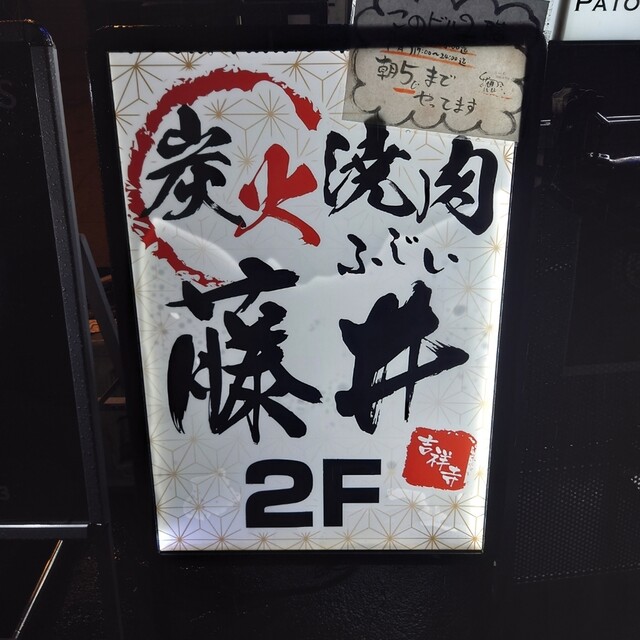 PATO
このビルの
19:00〜
朝5じまで
やってます
炭火焼肉
ふじい
藤井
吉祥寺
2F